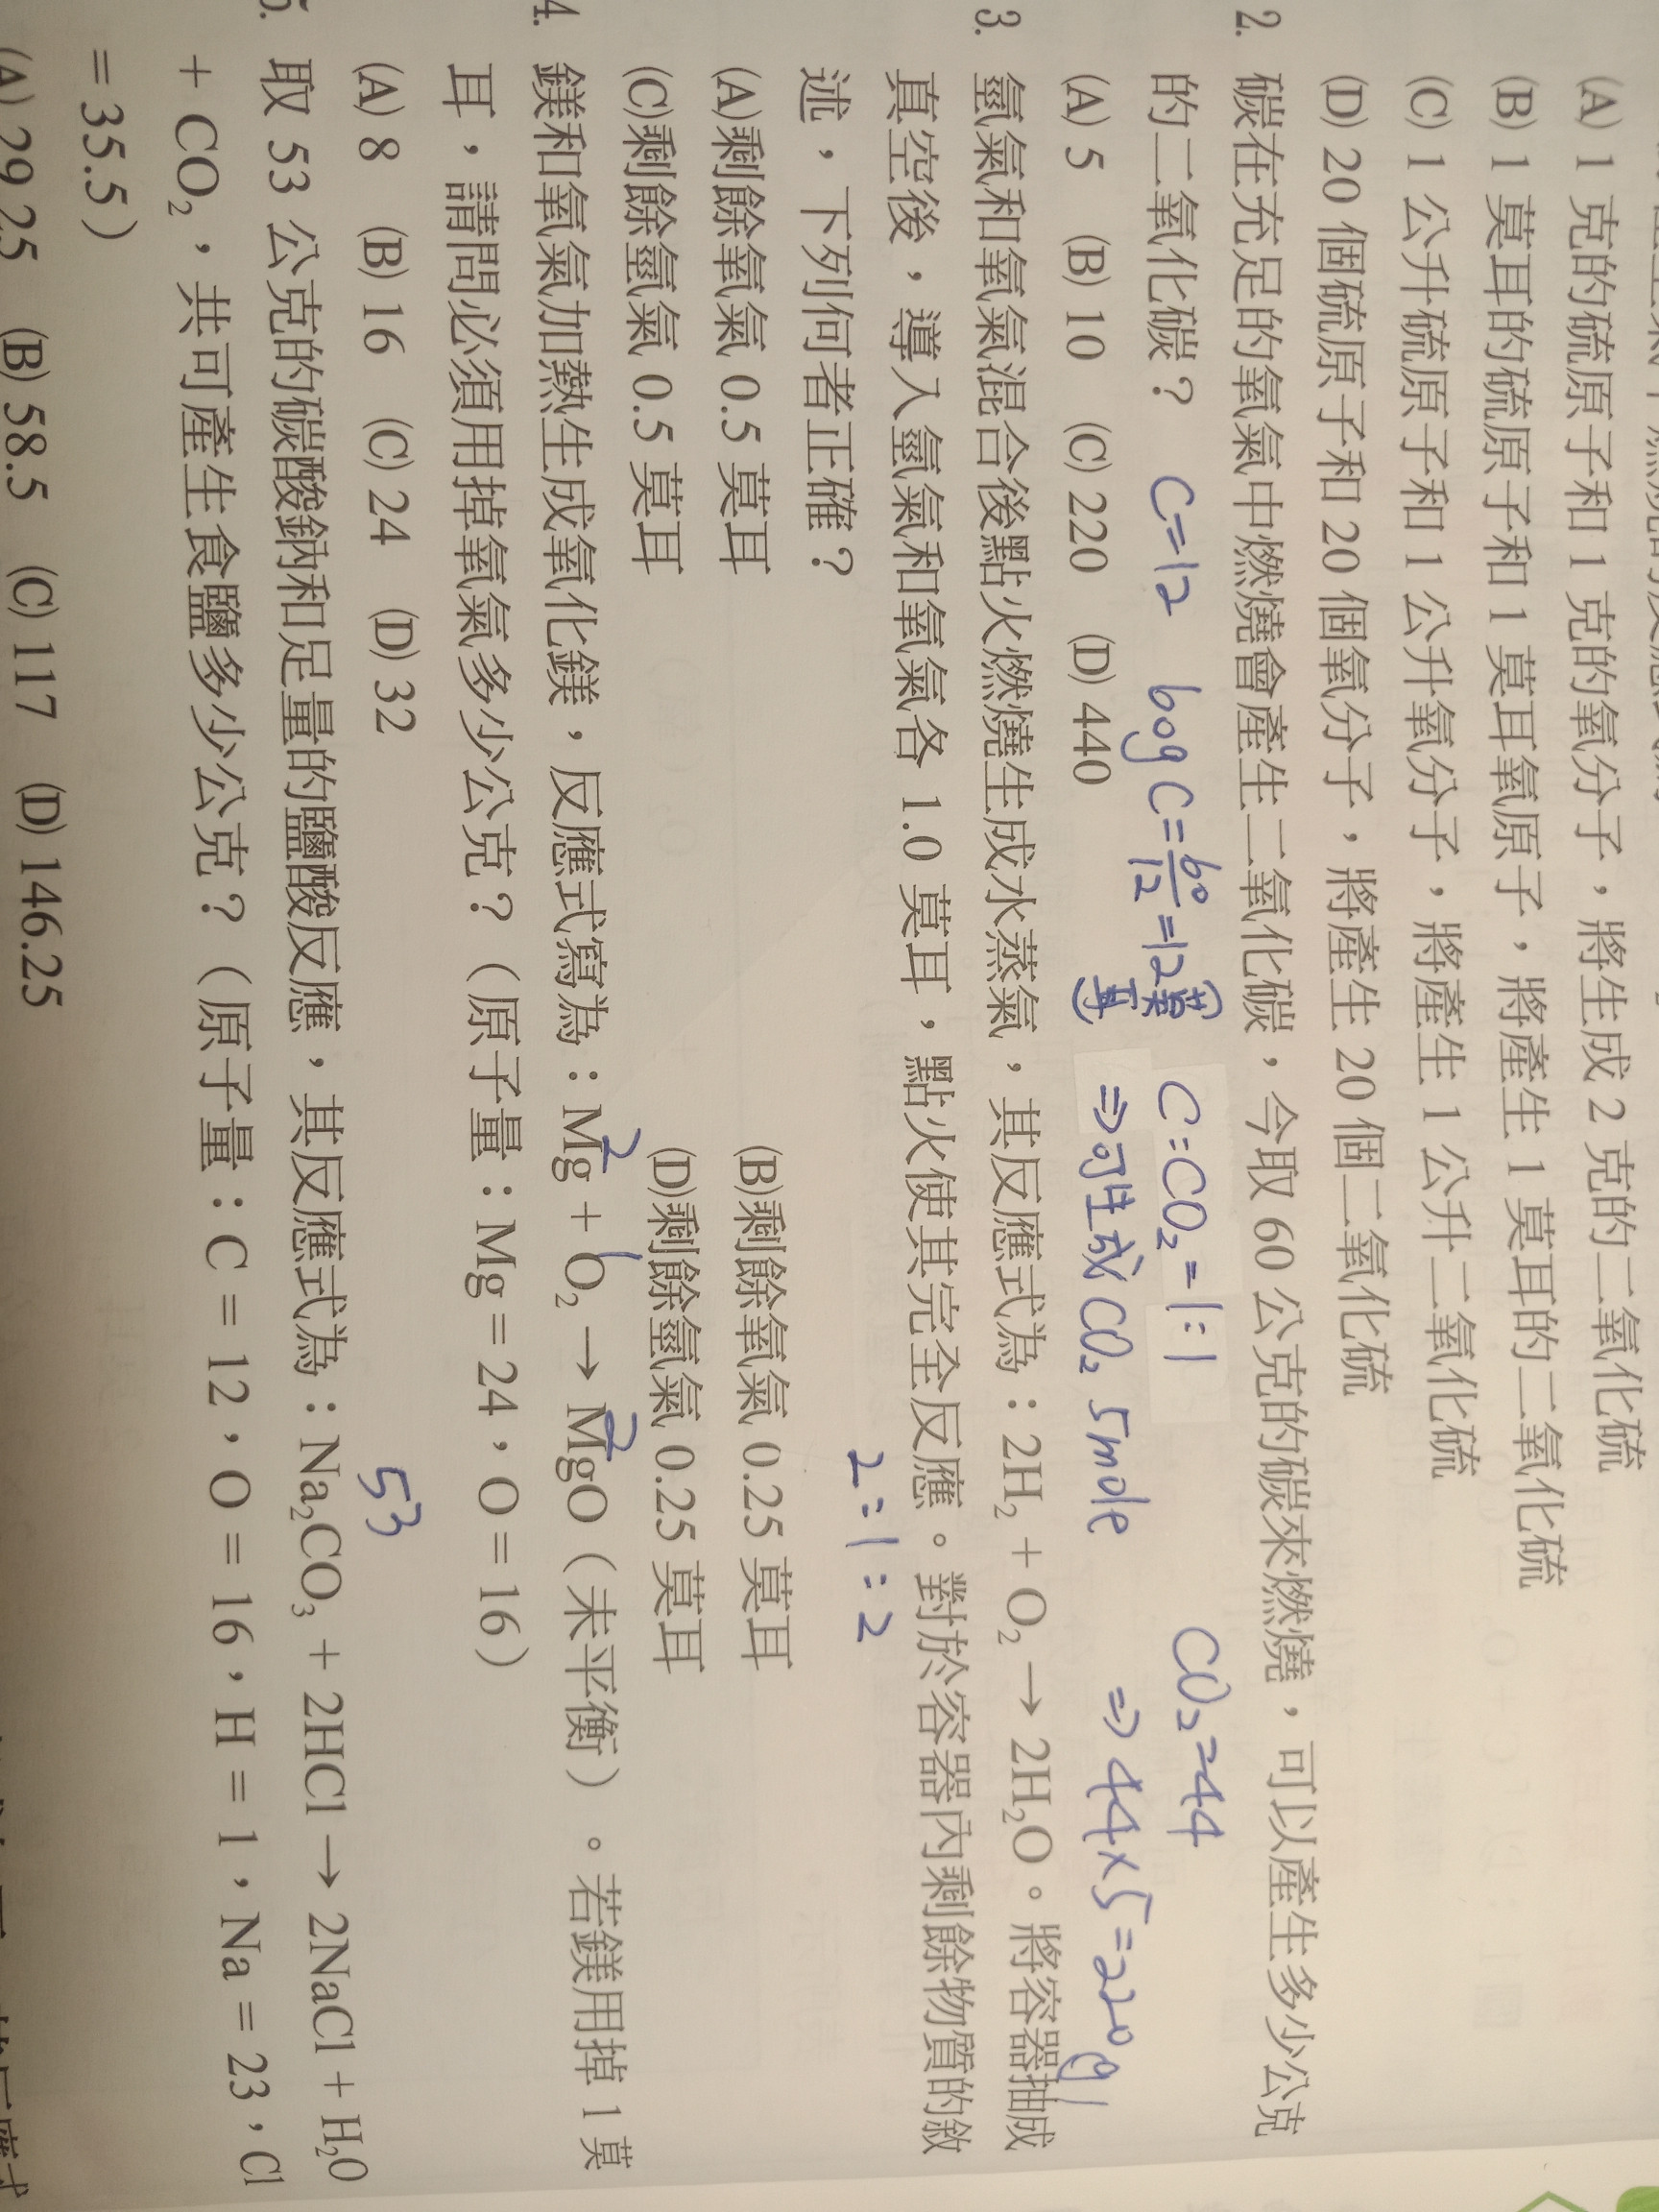 (A) 1 克的硫原子和 1 克的氧分子，將生成 2 克的二氧化硫
(B) 1 莫耳的硫原子和 1 莫耳氧原子，將產生 1 莫耳的二氧化硫
(C) 1 公升硫原子和 1 公升氧分子，將產生 1 公升二氧化硫
(D) 20 個硫原子和 20 個氧分子，將產生 20 個二氧化硫
2. 碳在充足的氧氣中燃燒會產生二氧化碳，今取 60 公克的碳來燃燒，可以產生多少公克
的二氧化碳？ C=12 60g C=60/12=12(莫耳) C:CO₂=1:1 CO₂=44
⇒可生成 CO₂ 5mole ⇒ 44×5=220(g)
(A) 5 (B) 10 (C) 220 (D) 440
3. 氫氣和氧氣混合後點火燃燒生成水蒸氣，其反應式為：2H₂ + O₂ → 2H₂O。將容器抽成
真空後，導入氫氣和氧氣各 1.0 莫耳，點火使其完全反應。對於容器內剩餘物質的敘
述，下列何者正確？ 2:1:2
(A)剩餘氧氣 0.5 莫耳 (B)剩餘氧氣 0.25 莫耳
(C)剩餘氫氣 0.5 莫耳 (D)剩餘氫氣 0.25 莫耳
2 1 2
4. 鎂和氧氣加熱生成氧化鎂，反應式寫為：Mg + O₂ → MgO（未平衡）。若鎂用掉 1 莫
耳，請問必須用掉氧氣多少公克？（原子量：Mg = 24，O = 16）
(A) 8 (B) 16 (C) 24 (D) 32
53
5. 取 53 公克的碳酸鈉和足量的鹽酸反應，其反應式為：Na₂CO₃ + 2HCl → 2NaCl + H₂O
+ CO₂，共可產生食鹽多少公克？（原子量：C = 12，O = 16，H = 1，Na = 23，Cl
= 35.5）
(A) 29.25 (B) 58.5 (C) 117 (D) 146.25